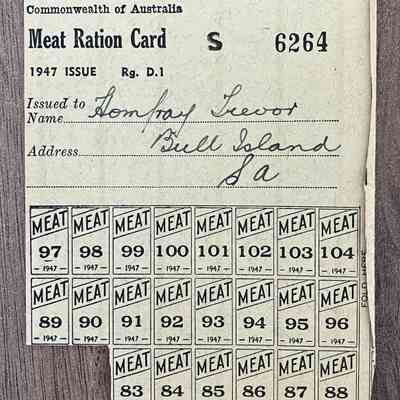 Commonwealth of Australia
Meat Ration Card S 6264
1947 ISSUE Rg. D.1
Issued to
Name Homfray Trevor
Address Bull Island
Sa
MEAT MEAT MEAT MEAT MEAT MEAT MEAT MEAT
97 98 99 100 101 102 103 104
—1947— —1947— —1947— —1947— —1947— —1947— —1947— —1947—
MEAT MEAT MEAT MEAT MEAT MEAT MEAT MEAT
89 90 91 92 93 94 95 96
—1947— —1947— —1947— —1947— —1947— —1947— —1947— —1947—
MEAT MEAT MEAT MEAT MEAT MEAT
83 84 85 86 87 88
FOLD HERE